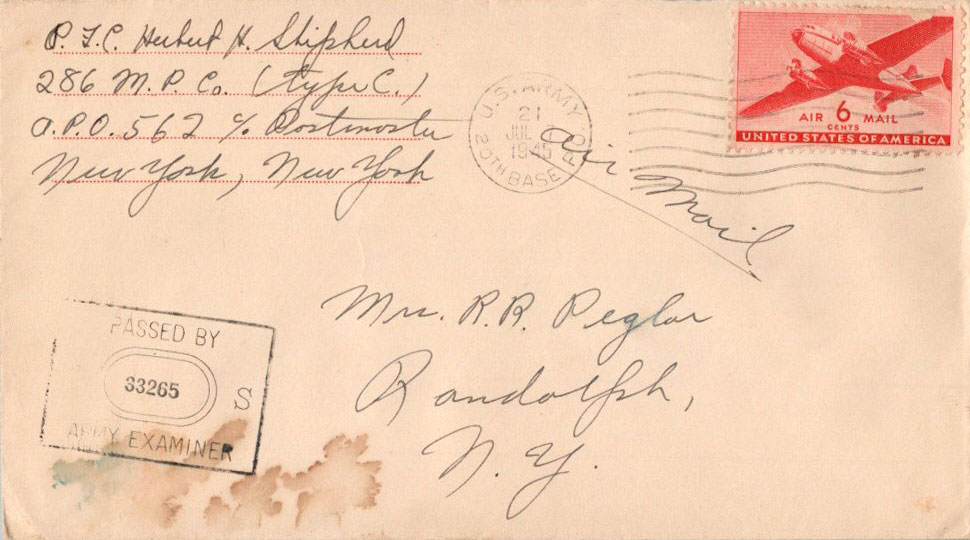 P.F.C. Herbert H. Shipherd
286 M.P. Co. (type C.)
A.P.O. 562 % Postmaster
New York, New York
U.S. ARMY
21
JUL
1945
20TH BASE P.O.
AIR 6 MAIL
CENTS
UNITED STATES OF AMERICA
Air Mail
Mrs. R.R. Peglar
Randolph,
N.Y.
PASSED BY
33265
S
ARMY EXAMINER